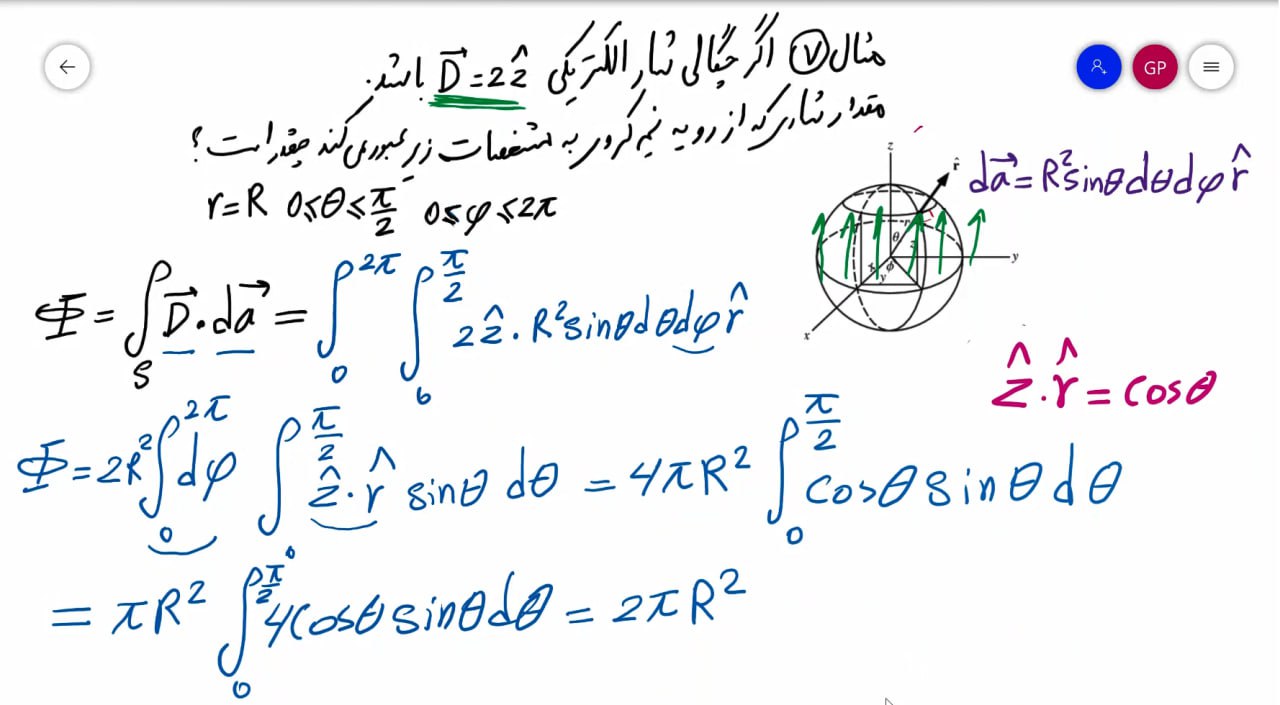 مثال ⑦ اگر چگالی شار الکتریکی D⃗ = 2ẑ باشد.
مقدار شاری که از رویه نیم کروی به مشخصات زیر عبور می کند چقدر است؟
r=R 0≤θ≤π/2 0≤φ≤2π
GP
da⃗ = R² sinθ dθ dφ r̂
z
r̂
r
θ
z
y
x
φ
y
x
Φ = ∫_S D⃗ . da⃗ = ∫_0^2π ∫_0^π/2 2ẑ . R² sinθ dθ dφ r̂
ẑ . r̂ = cosθ
Φ = 2R² ∫_0^2π dφ ∫_0^π/2 ẑ . r̂ sinθ dθ = 4πR² ∫_0^π/2 cosθ sinθ dθ
= πR² ∫_0^π/2 4cosθ sinθ dθ = 2πR²